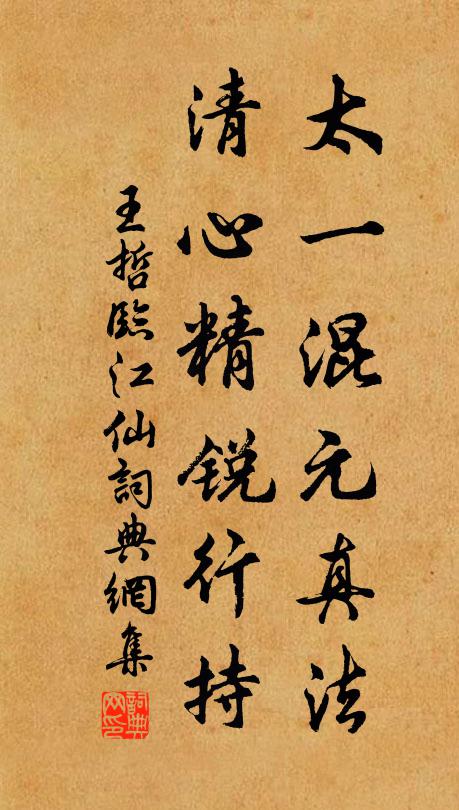 太一混元真法
清心精銳行持
王哲臨江仙詞典網集
詞典网印